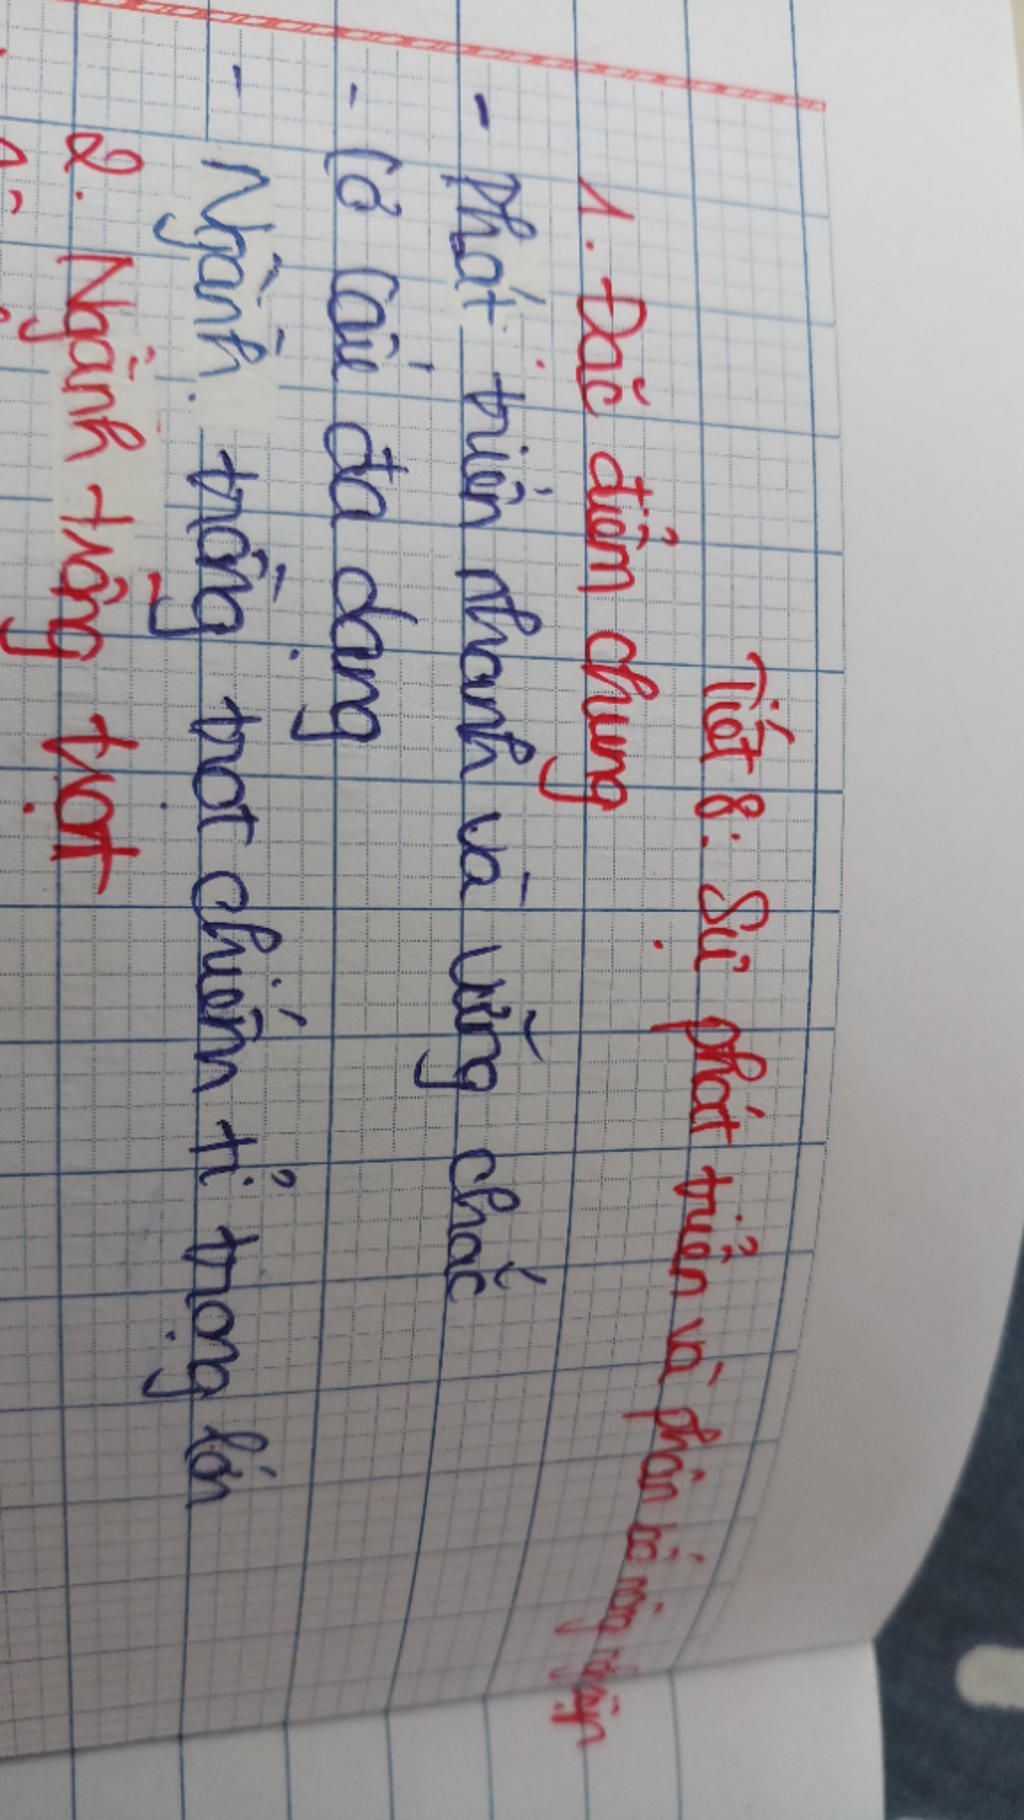 Tiết 8: Sự phát triển và phân bố nông nghiệp
1. Đặc điểm chung
- Phát triển nhanh và vững chắc
- Cơ cấu đa dạng
- Ngành trồng trọt chiếm tỉ trọng lớn
2. Ngành trồng trọt